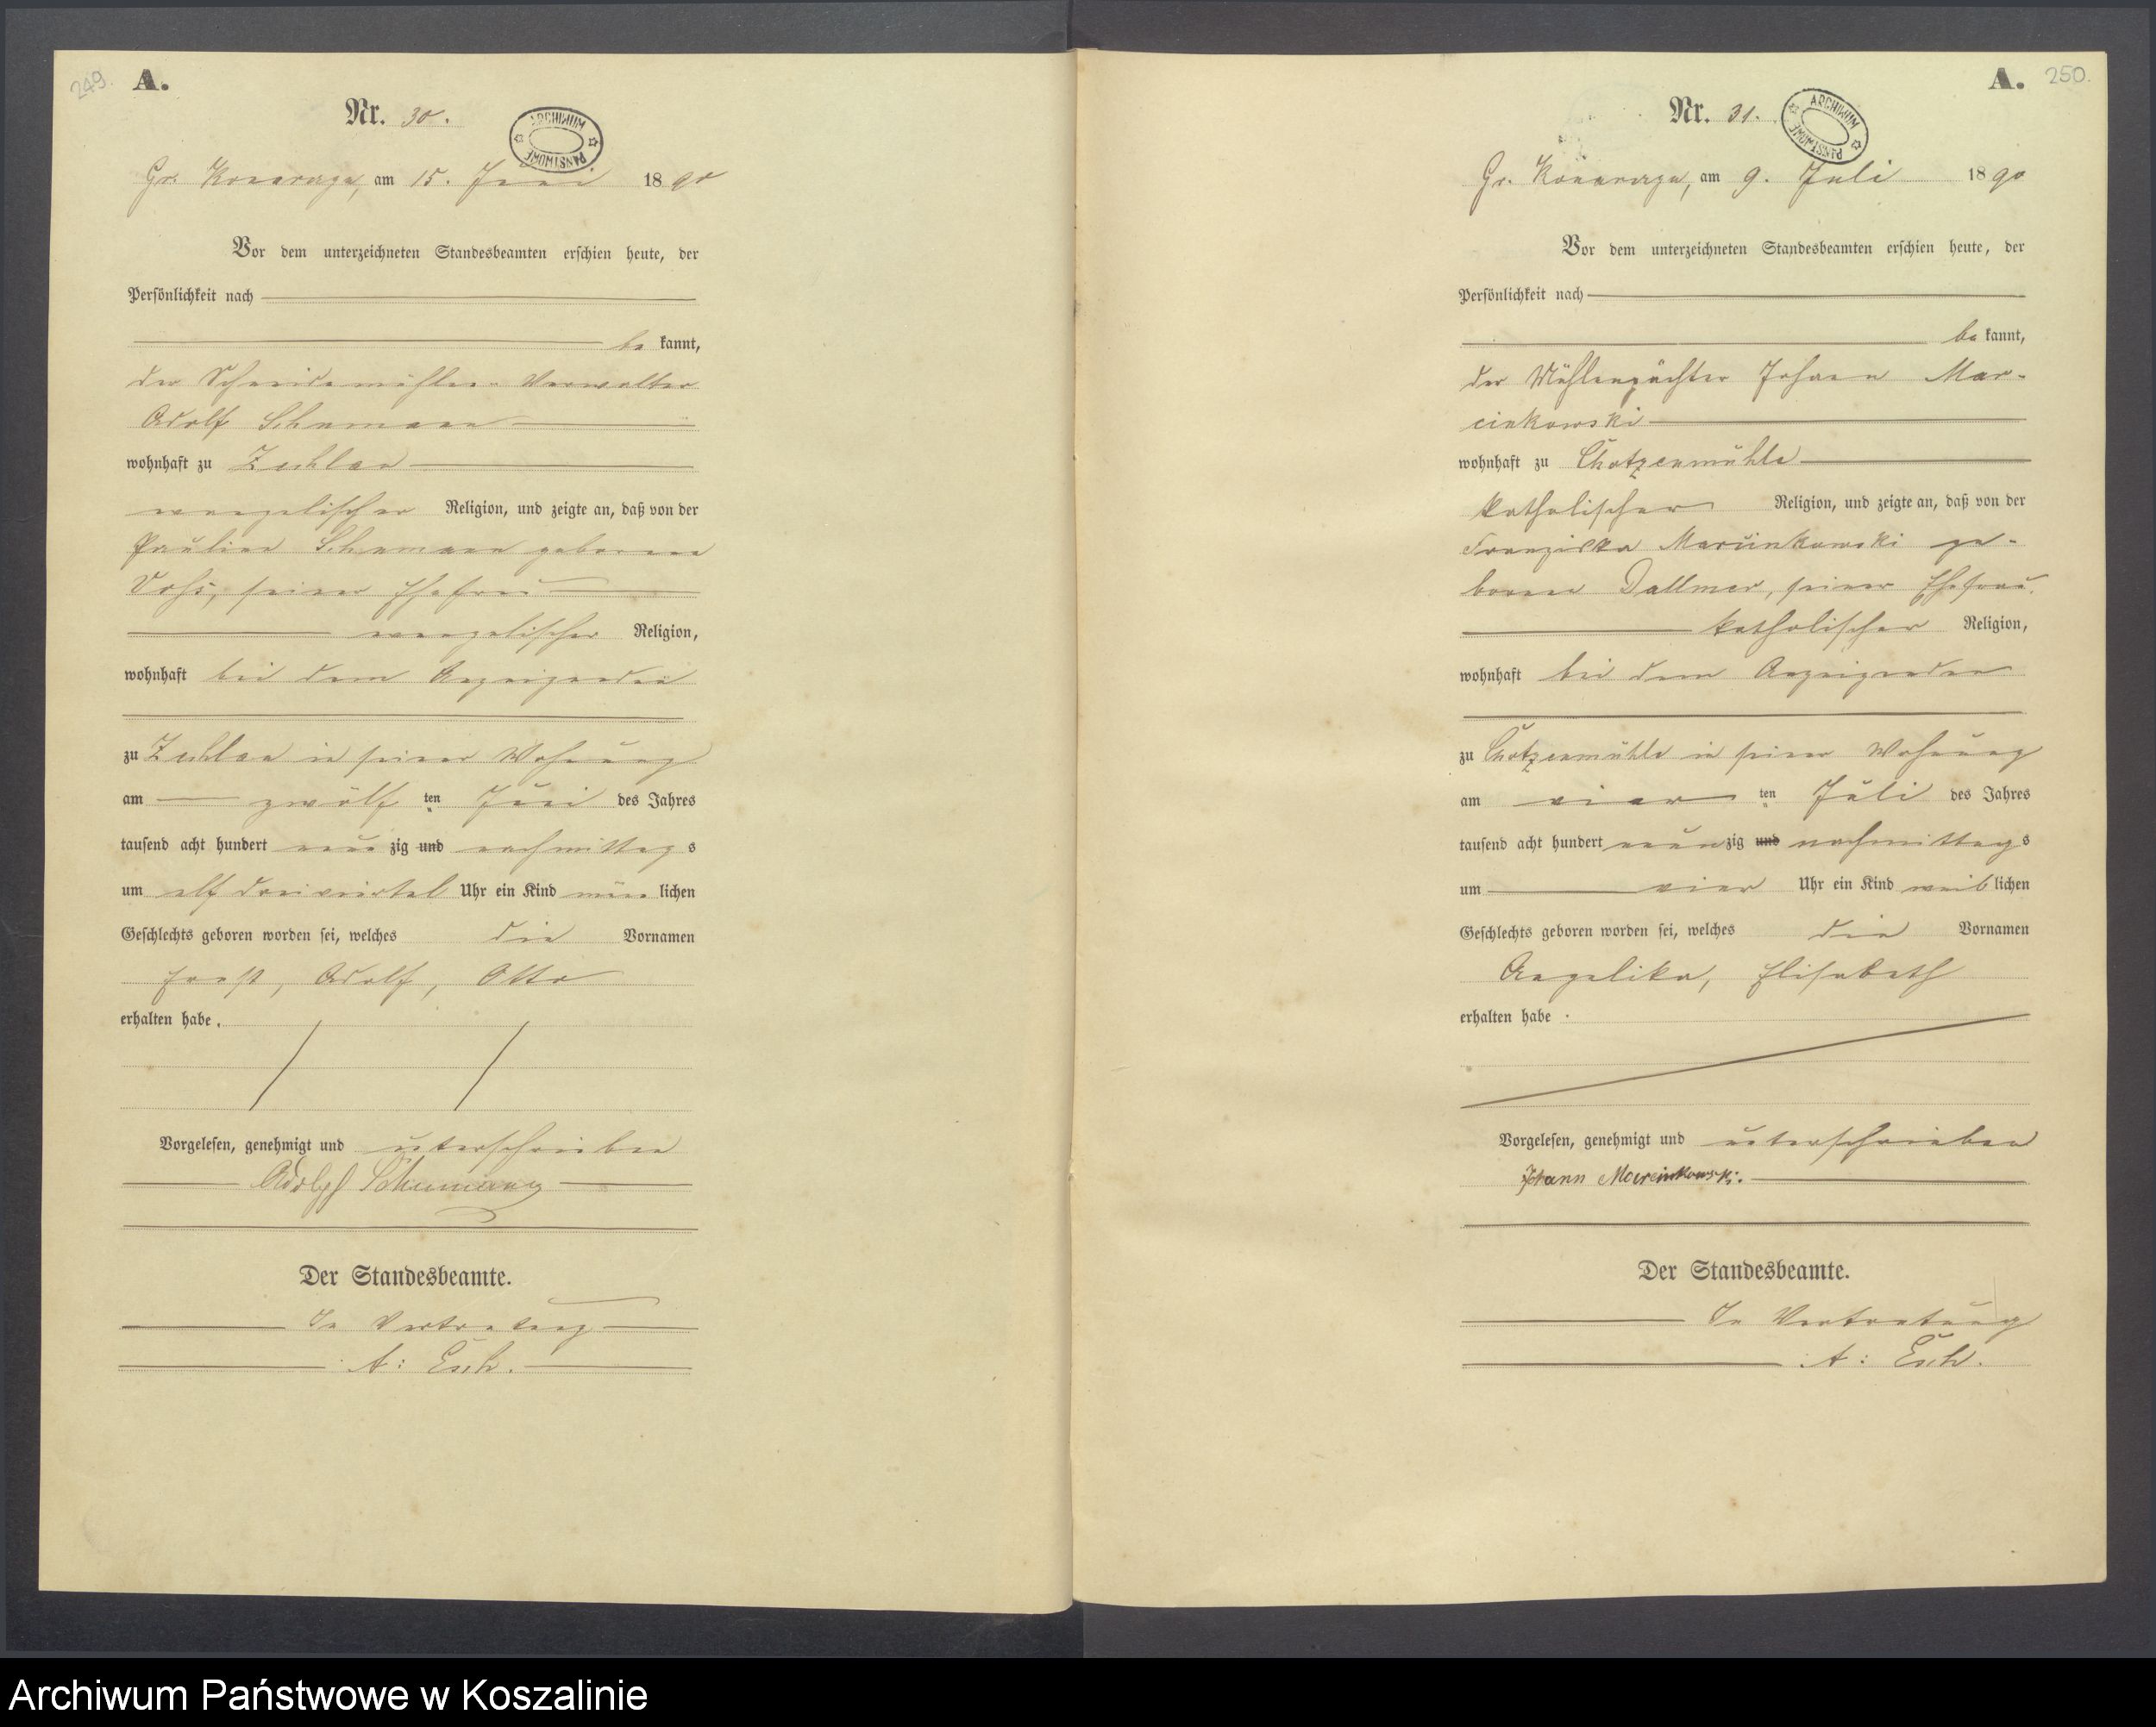 249.
A.
Nr. 30.
ARCHIWUM PAŃSTWOWE
Gr. Konarczyn, am 15. Juni 1890
Vor dem unterzeichneten Standesbeamten erschien heute, der
Persönlichkeit nach
be kannt,
der Schneidemühlen-Verwalter
Adolf Schumann
wohnhaft zu Zechlau
evangelischer Religion, und zeigte an, daß von der
Pauline Schumann geborene
Vohs, seiner Ehefrau
evangelischer Religion,
wohnhaft bei dem Anzeigenden
zu Zechlau in seiner Wohnung
am zwölf ten Juni des Jahres
tausend acht hundert neun zig und nachmittags
um elf dreiviertel Uhr ein Kind männlichen
Geschlechts geboren worden sei, welches die Vornamen
Ernst, Adolf, Otto
erhalten habe.
Vorgelesen, genehmigt und unterschrieben
Adolph Schumann
Der Standesbeamte.
In Vertretung
A: Esch.
A. 250.
Nr. 31.
ARCHIWUM PAŃSTWOWE
Gr. Konarczyn, am 9. Juli 1890
Vor dem unterzeichneten Standesbeamten erschien heute, der
Persönlichkeit nach
be kannt,
der Mühlenpächter Johann Mar-
cinkowski
wohnhaft zu Chotzenmühle
katholischer Religion, und zeigte an, daß von der
Franziska Marcinkowski ge-
borene Dallmer, seiner Ehefrau
katholischer Religion,
wohnhaft bei dem Anzeigenden
zu Chotzenmühle in seiner Wohnung
am vier ten Juli des Jahres
tausend acht hundert neunzig und nachmittags
um vier Uhr ein Kind weiblichen
Geschlechts geboren worden sei, welches die Vornamen
Angelika, Elisabeth
erhalten habe.
Vorgelesen, genehmigt und unterschrieben
Johann Marcinkowski.
Der Standesbeamte.
In Vertretung
A: Esch.
Archiwum Państwowe w Koszalinie